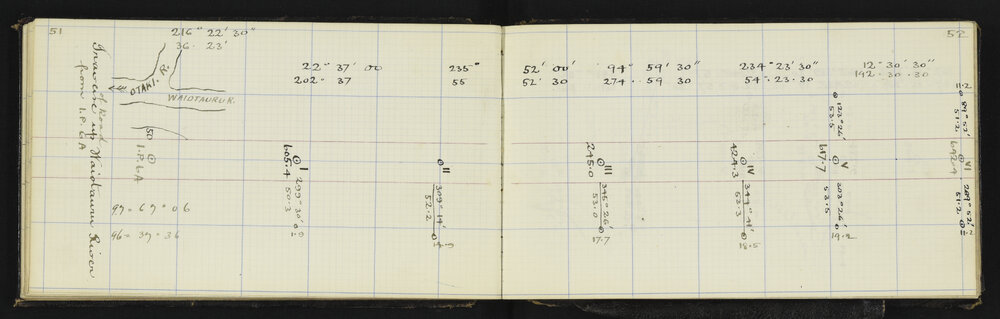 51
Traverse of Road up Waiotauru River
from I.P. 6A
216° 22' 30"
36. 23'
OTAKI. R.
WAIOTAURU R.
50
I.P. 6A
97 = 67 = 06
96 = 37 = 36
22° 37' 00
202° 37
I
605.4
299° 30'
50.3
1.9
235°
55
II
309° 14'
52.2
52
52' 00'
52' 30
94° 59' 30"
274. 59 30
III
245.0
345° 26'
53.0
17.7
234° 23' 30"
54. 23. 30
IV
424.3
344° 41'
53.3
18.5
123° 26'
53.5
V
617.7
303° 26'
53.5
19.2
12° 30' 30"
192. 30. 30
89° 52'
51.2
VI
692.4
269° 52'
51.2